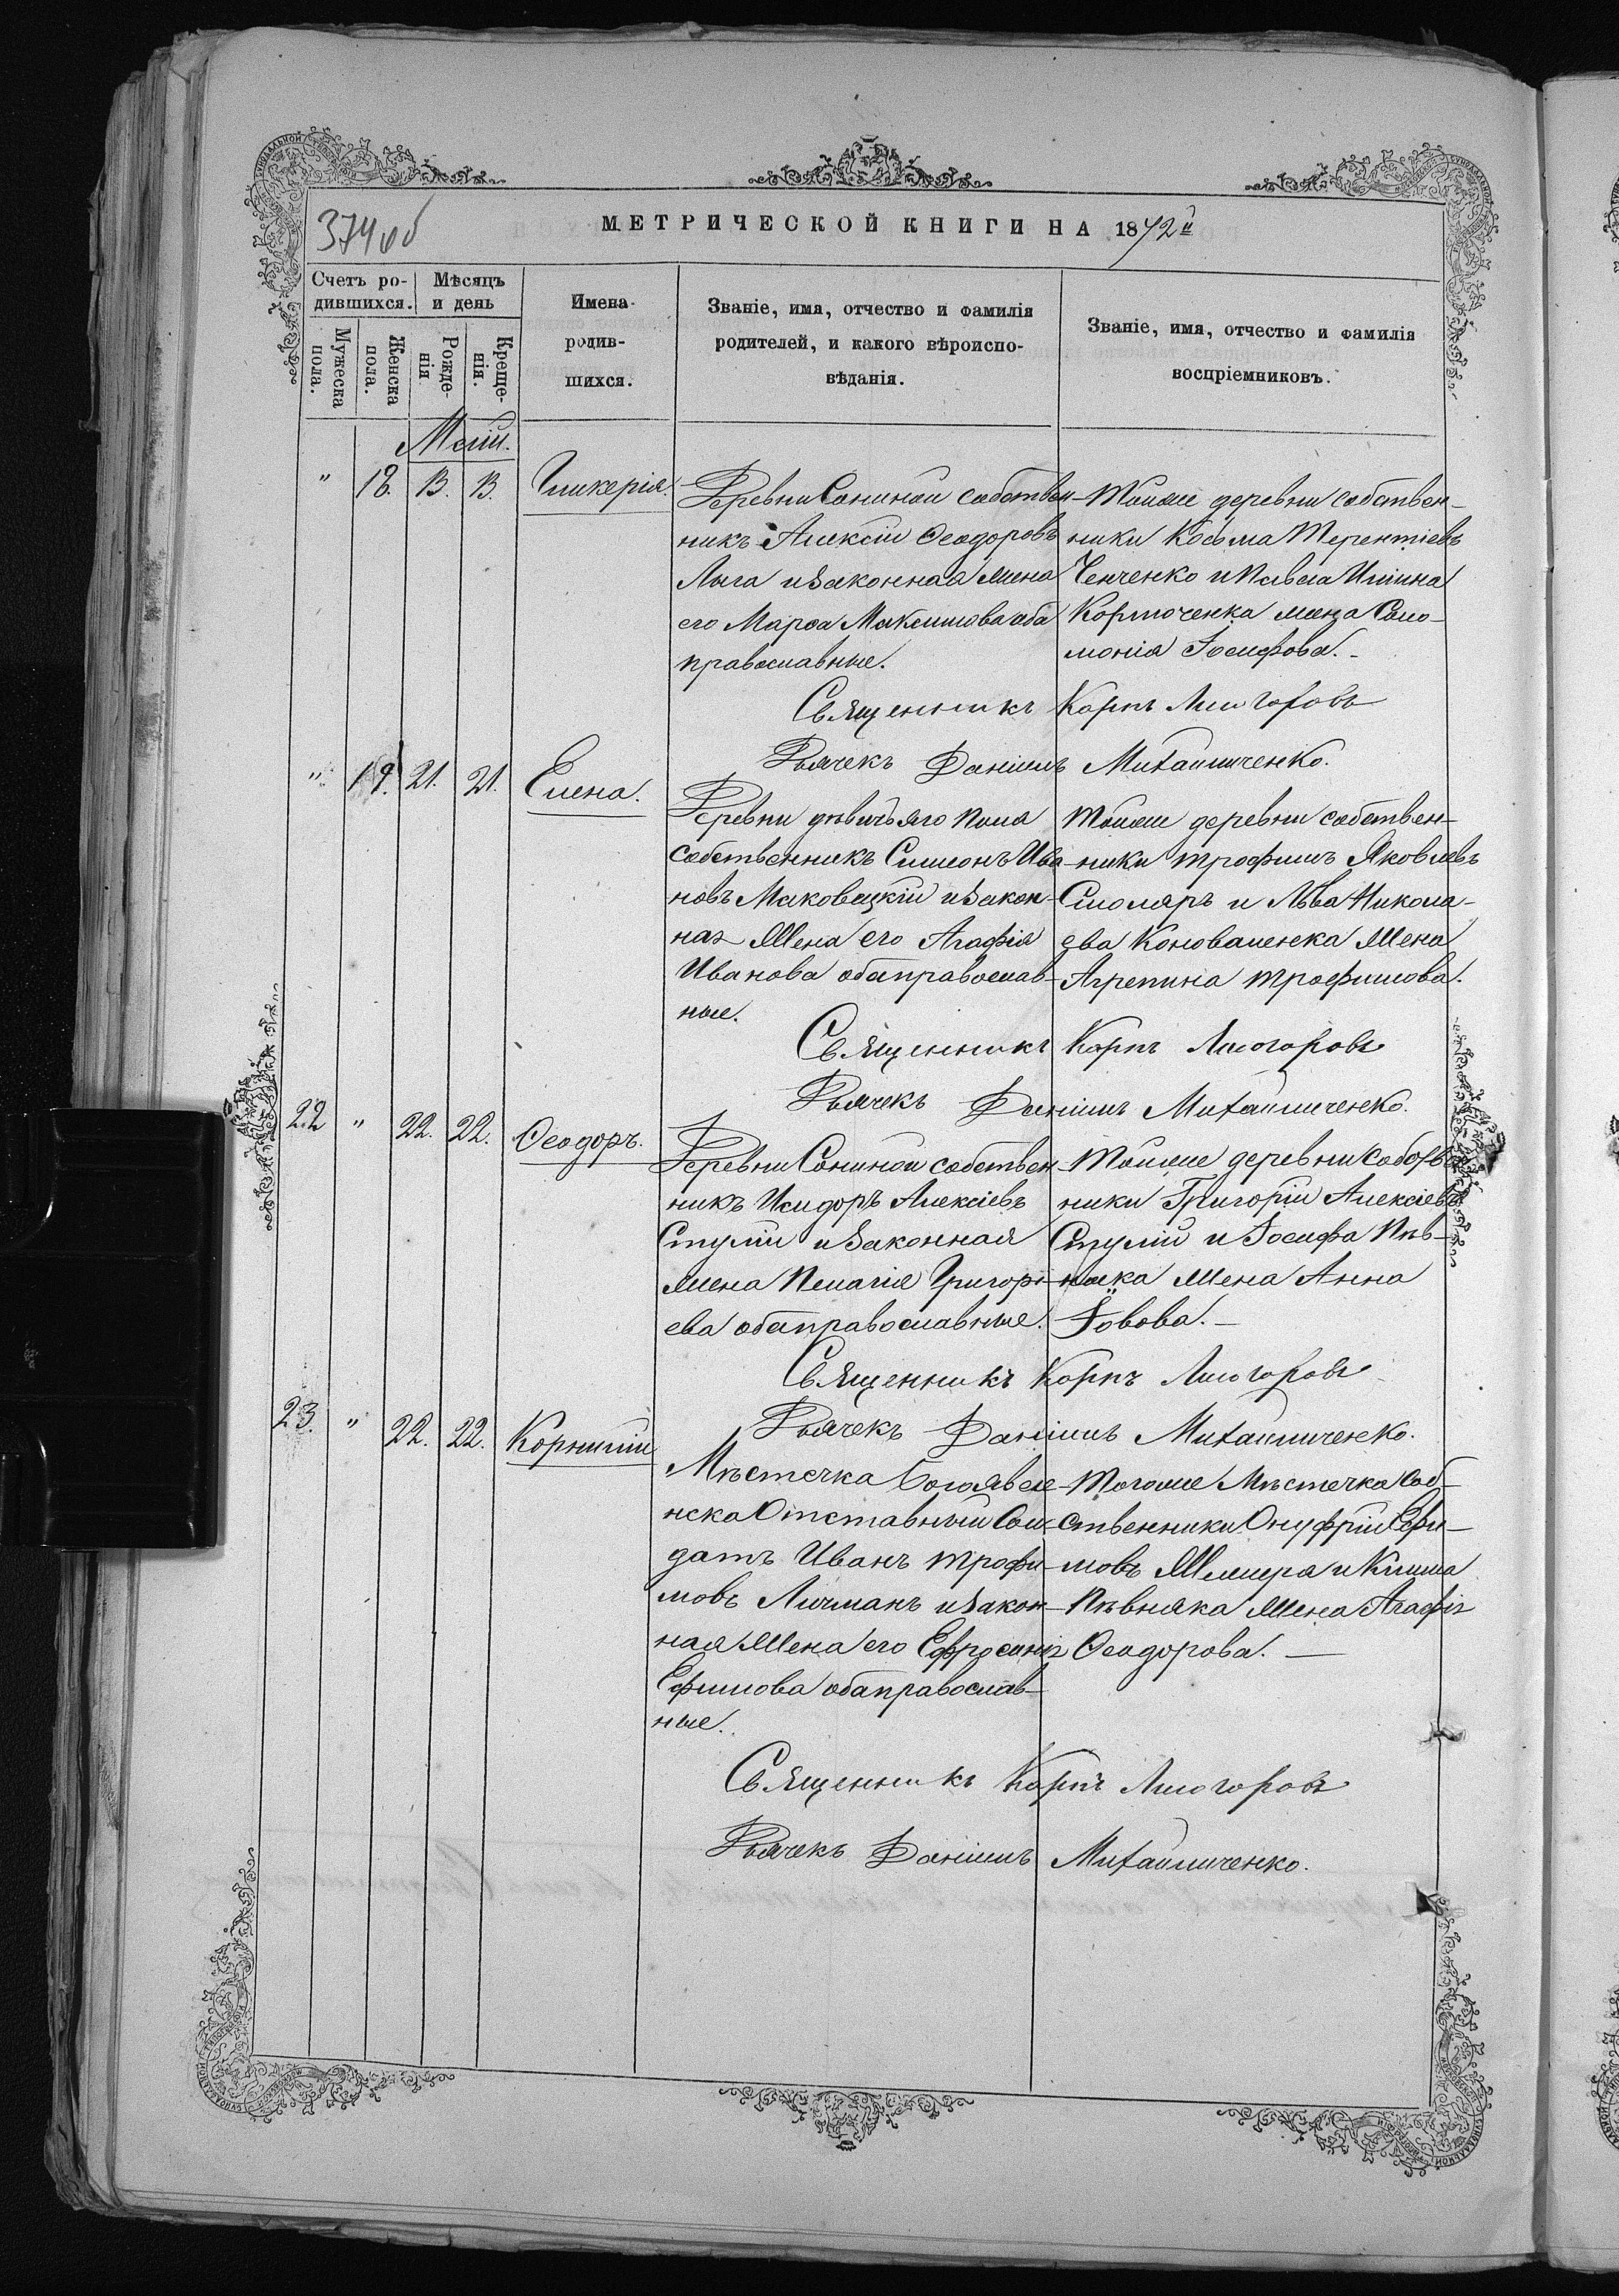 374об
МЕТРИЧЕСКОЙ КНИГИ НА 1872й
Счетъ родившихся.
Мѣсяцъ и день
Имена родившихся.
Званіе, имя, отчество и фамилія родителей, и какого вѣроисповѣданія.
Званіе, имя, отчество и фамилія воспріемниковъ.
Мужеска пола.
Женска пола.
Рожденія
Крещенія.
Маій.
" 18. 13. 13. Гликерія.
Деревни Сониной собствен-
никъ Алексій Ѳеодоровъ
Лыга и законная жена
его Марѳа Максимова оба
православные.
Тойже деревни собствен-
ники Косьма Терентіевъ
Ченченко и Павла Ильина
Корточенка жена Соло-
монія Іосифова.
Священникъ Карпъ Лисогоровъ
Дьячекъ Даніилъ Михайличенко.
" 19. 21. 21. Елена.
Деревни дѣвичьяго поля
собственникъ Симеонъ Ива-
новъ Маковецкій и закон-
ная жена его Агафія
Иванова оба православ-
ные.
Тойже деревни собствен-
ники Трофимъ Яковлевъ
Смоляръ и Льва Никола-
ева Коноваленка жена
Агрепина Трофимова.
Священникъ Карпъ Лисогоровъ
Дьячекъ Даніилъ Михайличенко.
22 " 22. 22. Ѳеодоръ.
Деревни Сониной собствен-
никъ Исидоръ Алексіевъ
Стулій и законная
жена Пелагія Григорі-
ева оба православные.
Тойже деревни собств
ники Григорій Алексіевъ
Стулій и Іосифа Пѣв-
няка жена Анна
Іовова.
Священникъ Карпъ Лисогоровъ
Дьячекъ Даніилъ Михайличенко.
23. " 22. 22. Корнилій
Мѣстечка Богоявле-
нска Отставный Сол-
датъ Иванъ Трофи-
мовъ Личманъ и закон-
ная жена его Ефросинія
Ефимова оба православ-
ные.
Тогоже Мѣстечка соб-
ственники Онуфрій Ефи-
мовъ и Клима
Пѣвняка жена Агафія
Ѳеодорова.
Священникъ Карпъ Лисогоровъ
Дьячекъ Даніилъ Михайличенко.